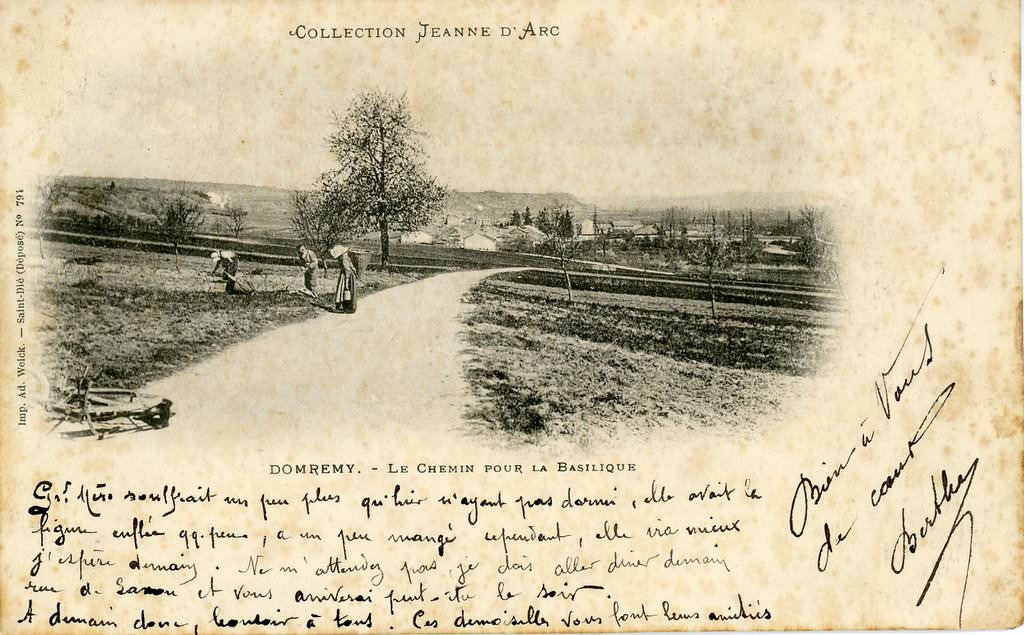 COLLECTION JEANNE D'ARC
Imp. Ad. Weick. — Saint-Dié (Déposé) No 791
DOMREMY. - LE CHEMIN POUR LA BASILIQUE
Grd Mère souffrait un peu plus qu'hier n'ayant pas dormi, elle avait la
figure enflée qq. peu, a un peu mangé cependant, elle ira mieux
j'espère demain. Ne m'attendez pas, je dois aller diner demain
rue de et vous arriverai peut-être le soir.
A demain donc, bonsoir à tous! Ces demoiselles vous font leurs amitiés
Bien à Vous
de cœur
Berthe